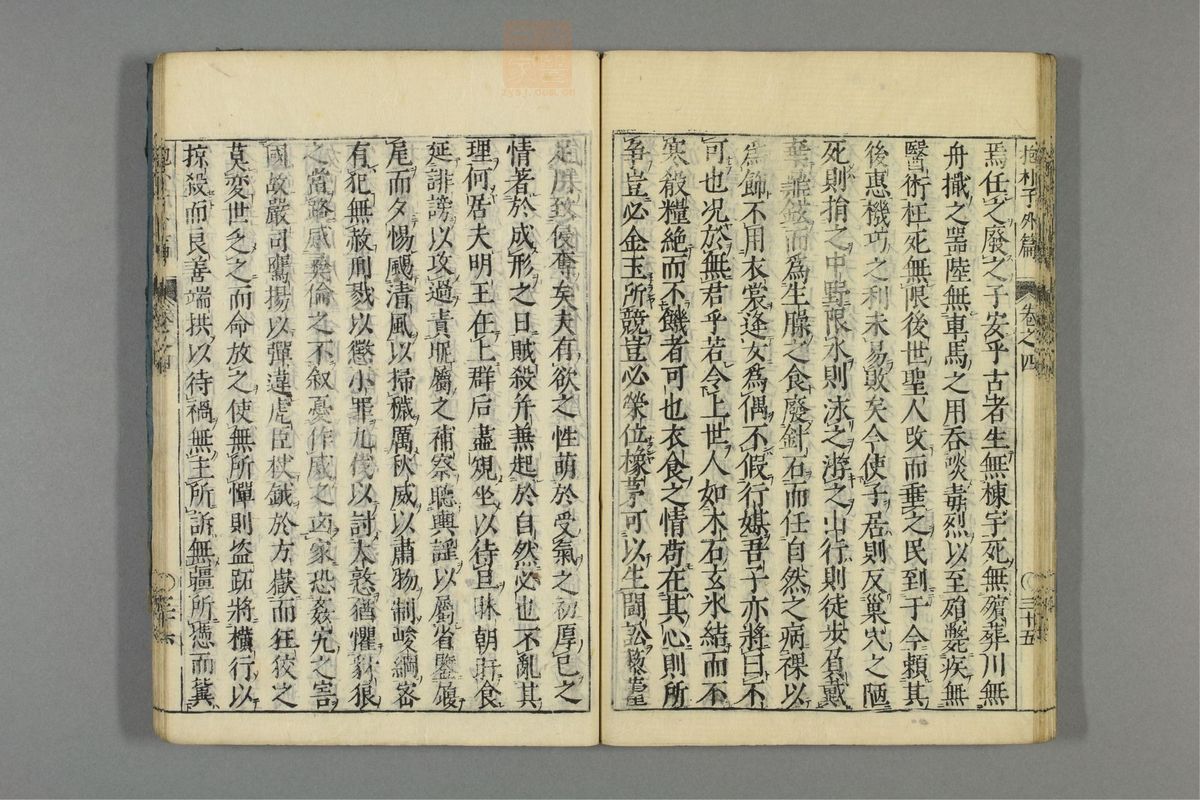 抱朴子外篇 卷之四 三十五
焉任之廢之子安乎古者生無棟宇死無殯葬川無
舟檝之噐陸無車馬之用吞啖毒烈以至殞斃疾無
醫術枉死無限後世聖人改而垂之民到于今賴其
後惠機巧之利未易敗矣今使子居則反巢穴之陋
死則捐之中野限水則泳之游之山行則徒步負戴
棄鼎鉉而爲生臊之食廢針石而任自然之病祼以
爲飾不用衣裳逢女爲偶不假行媒吾子亦將曰不
可也况於無君乎若令上世人如木石玄氷結而不
寒殺糧絶而不饑者可也衣食之情苟在其心則所
爭豈必金玉所競豈必榮位橡茅可以生鬪訟藜藿
足用致侵奪矣夫有欲之性萌於受氣之初厚已之
情著於成形之日賊殺并兼起於自然必也不亂其
理何居夫明王在上群后盡䂓坐以待旦昧朝旰食
延誹謗以攻過責昵屬之補察聽輿謡以屬省鑒履
尾而夕惕颺清風以掃穢厲秋威以肅物制峻綱密
有犯無赦刑戮以懲小罪九伐以討大憝猶懼豺狼
之當路感彜倫之不叙憂作威之凶家恐姦宄之害
國故嚴司鷹揚以彈違虎臣杖鉞於方嶽而狂狡之
莫變世之之而命放之使無所憚則盗跖將橫行以
掠殺而良善端拱以待禍無主所訴無疆所憑而冀
卷之四
zysj.com.cn